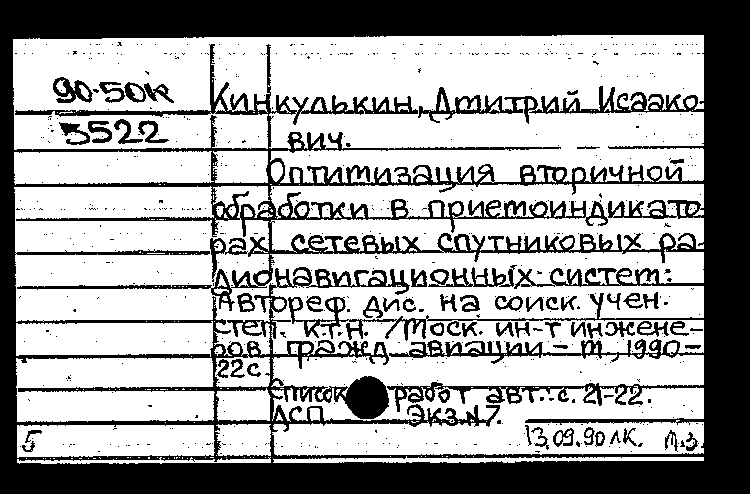 90-50к
3522
Кинкулькин, Дмитрий Исаако-
вич.
Оптитизация вторичной
обработки в приемоиндикато-
рах сетевых спутниковых ра-
дионавигационных систем:
Автореф. дис. на соиск. учен.
степ. к.т.н. /Моск. ин-т инжене-
ров гражд. авиации - М., 1990-
22с.
Список работ авт.: с. 21-22.
ДСП Экз.№7.
5 13.09.90 ЛК. Л.З.